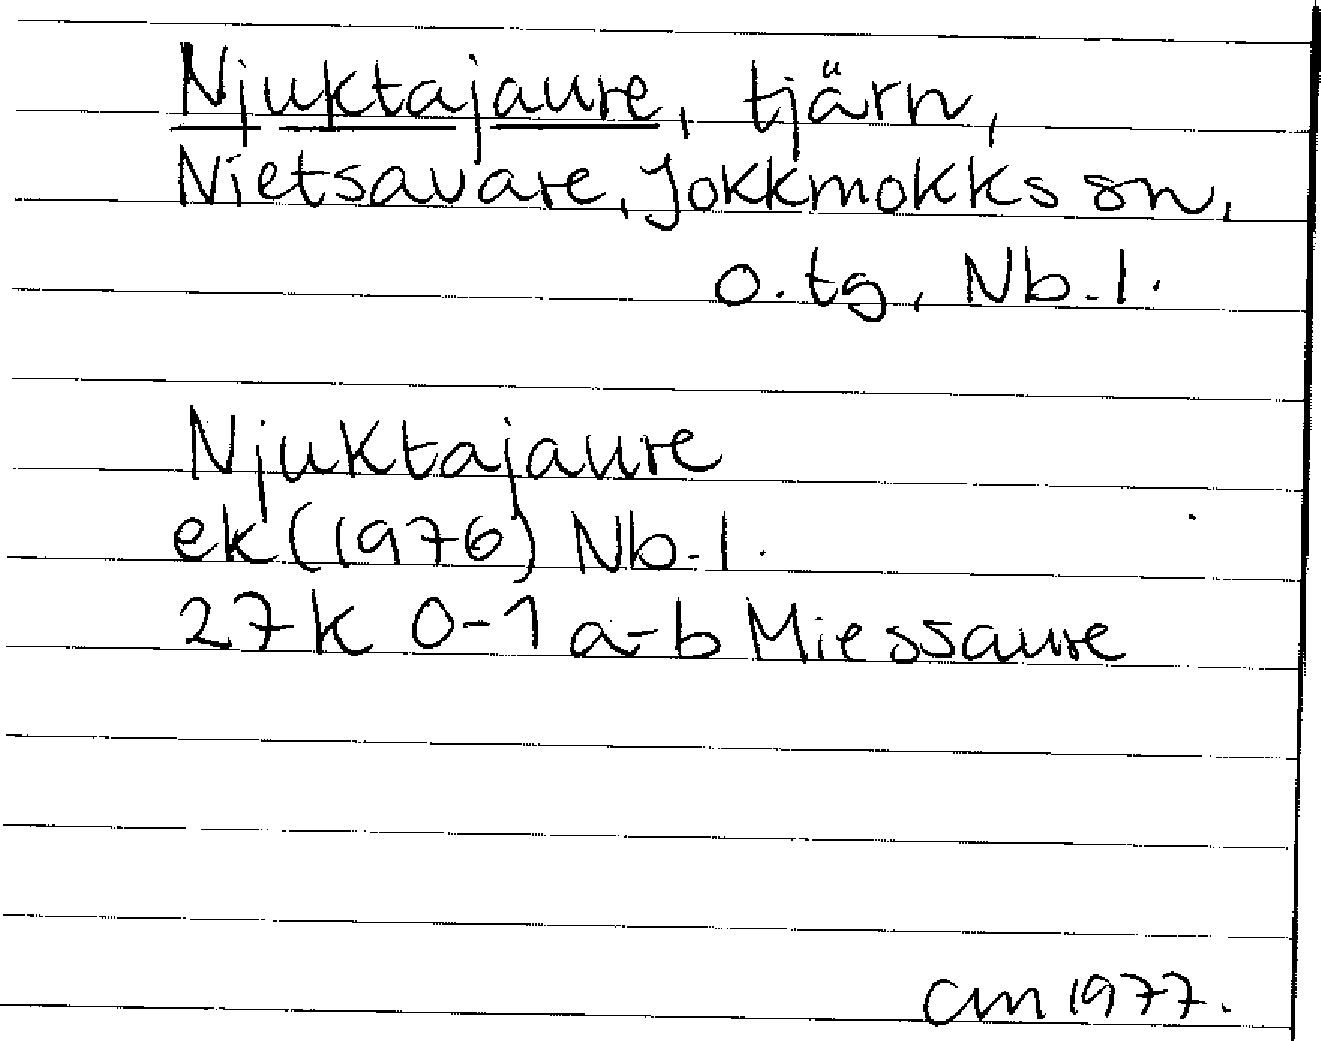 Njuktajaure, tjärn,
Nietsavare, Jokkmokks sn,
o. tg, Nb. l.
Njuktajaure
ek (1976) Nb. l.
27 K 0-1 a-b Miessaure
CM 1977.